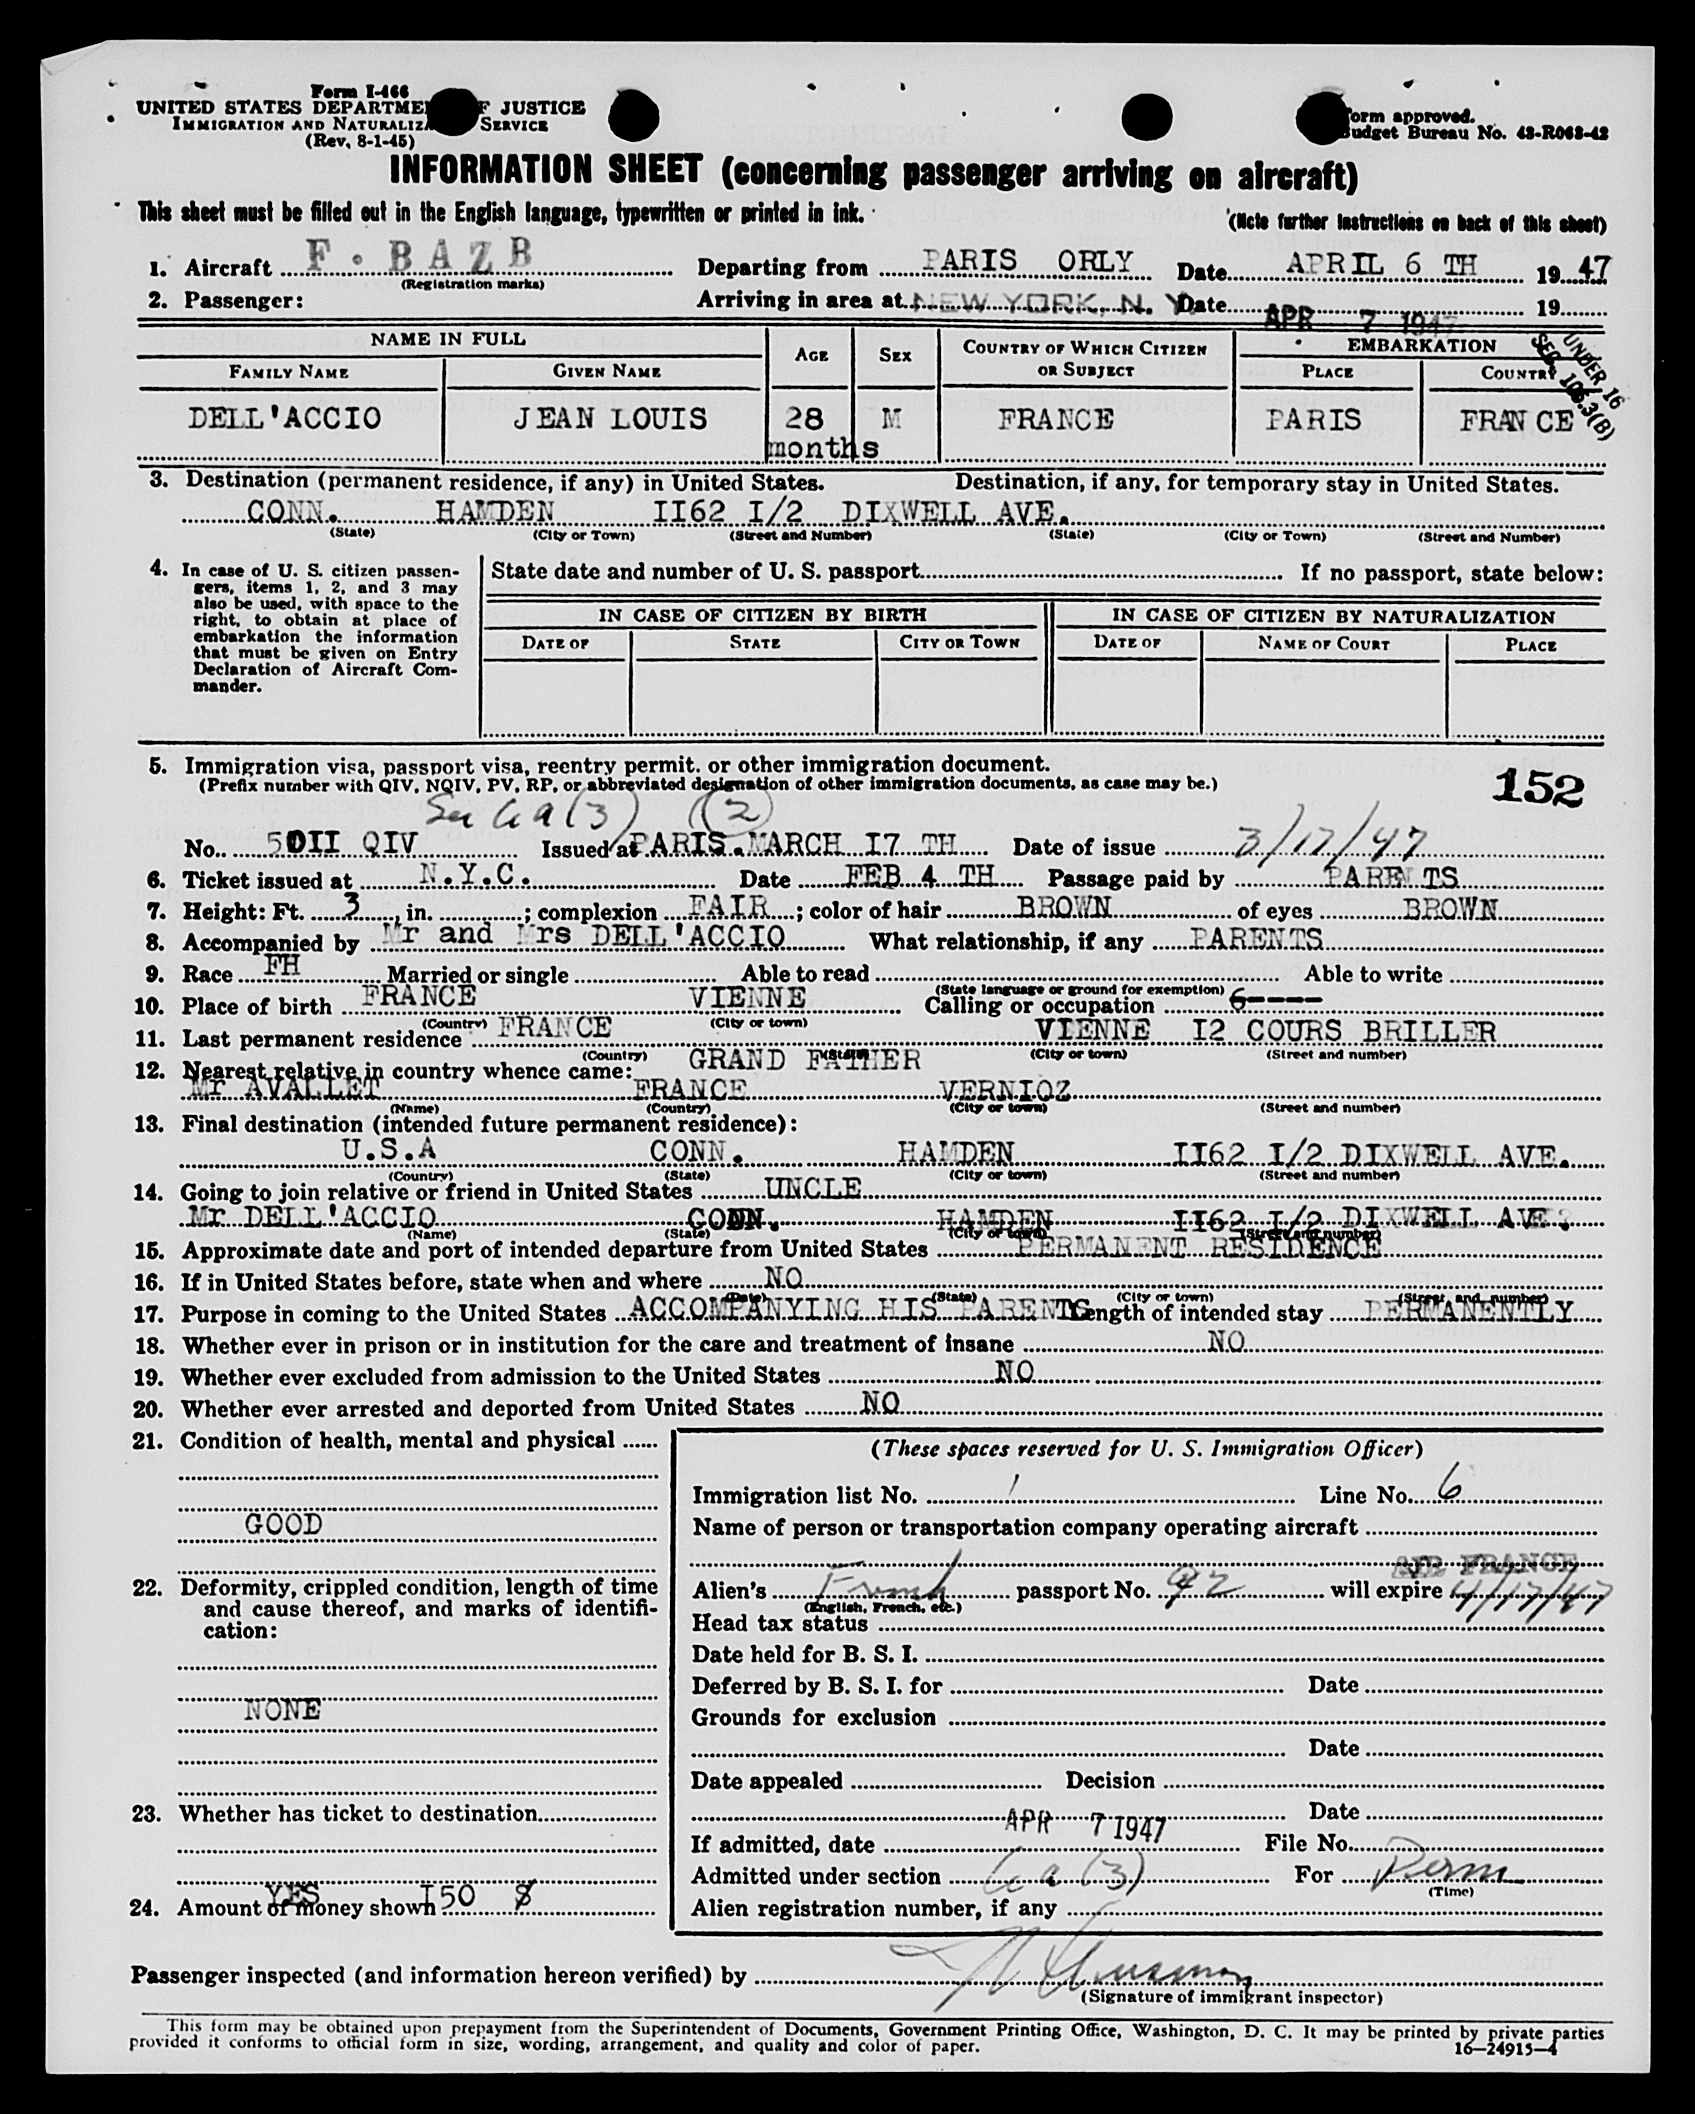 Form I-466
UNITED STATES DEPARTME F JUSTICE
IMMIGRATION AND NATURALIZA SERVICE
(Rev. 8-1-45)
orm approved.
udget Bureau No. 43-R068-42
INFORMATION SHEET (concerning passenger arriving on aircraft)
This sheet must be filled out in the English language, typewritten or printed in ink.
(Note further instructions on back of this sheet)
1. Aircraft F. BAZB Departing from PARIS ORLY Date APRIL 6 TH 1947
(Registration marks)
2. Passenger: Arriving in area at NEW YORK, N. Y. Date APR 7 1947 19
NAME IN FULL AGE SEX COUNTRY OF WHICH CITIZEN OR SUBJECT EMBARKATION
FAMILY NAME GIVEN NAME PLACE COUNTRY
UNDER 16
SEC 105.3(B)
DELL'ACCIO JEAN LOUIS 28 months M FRANCE PARIS FRANCE
3. Destination (permanent residence, if any) in United States. Destination, if any, for temporary stay in United States.
CONN. HAMDEN II62 I/2 DIXWELL AVE.
(State) (City or Town) (Street and Number) (State) (City or Town) (Street and Number)
4. In case of U. S. citizen passen-
gers, items 1, 2, and 3 may
also be used, with space to the
right, to obtain at place of
embarkation the information
that must be given on Entry
Declaration of Aircraft Com-
mander.
State date and number of U. S. passport If no passport, state below:
IN CASE OF CITIZEN BY BIRTH IN CASE OF CITIZEN BY NATURALIZATION
DATE OF STATE CITY OR TOWN DATE OF NAME OF COURT PLACE
5. Immigration visa, passport visa, reentry permit. or other immigration document.
(Prefix number with QIV, NQIV, PV, RP, or abbreviated designation of other immigration documents, as case may be.)
152
Sec 6a(3) (2)
No. 50II QIV Issued at PARIS. MARCH I7 TH Date of issue 3/17/47
6. Ticket issued at N.Y.C. Date FEB 4 TH Passage paid by PARENTS
7. Height: Ft. 3, in. ; complexion FAIR; color of hair BROWN of eyes BROWN
8. Accompanied by Mr and Mrs DELL'ACCIO What relationship, if any PARENTS
9. Race FH Married or single Able to read Able to write
(State language or ground for exemption)
10. Place of birth FRANCE VIENNE Calling or occupation 6----
(Country) (City or town)
11. Last permanent residence FRANCE VIENNE I2 COURS BRILLER
(Country) (State) (City or town) (Street and number)
12. Nearest relative in country whence came: GRAND FATHER
Mr AVALLET FRANCE VERNIOZ
(Name) (Country) (City or town) (Street and number)
13. Final destination (intended future permanent residence):
U.S.A CONN. HAMDEN II62 I/2 DIXWELL AVE.
(Country) (State) (City or town) (Street and number)
14. Going to join relative or friend in United States UNCLE
Mr DELL'ACCIO CONN. HAMDEN II62 I/2 DIXWELL AVE.
(Name) (State) (City or town) (Street and number)
15. Approximate date and port of intended departure from United States PERMANENT RESIDENCE
16. If in United States before, state when and where NO
(Date) (State) (City or town) (Street, and number)
17. Purpose in coming to the United States ACCOMPANYING HIS PARENTS Length of intended stay PERMANENTLY
18. Whether ever in prison or in institution for the care and treatment of insane NO
19. Whether ever excluded from admission to the United States NO
20. Whether ever arrested and deported from United States NO
21. Condition of health, mental and physical
GOOD
22. Deformity, crippled condition, length of time
and cause thereof, and marks of identifi-
cation:
NONE
23. Whether has ticket to destination
YES
24. Amount of money shown I50 $
(These spaces reserved for U. S. Immigration Officer)
Immigration list No. 1 Line No. 6
Name of person or transportation company operating aircraft
AIR FRANCE
Alien's French passport No. 92 will expire 4/17/47
(English, French, etc.)
Head tax status
Date held for B. S. I.
Deferred by B. S. I. for Date
Grounds for exclusion
Date
Date appealed Decision
Date
If admitted, date APR 7 1947 File No.
Admitted under section 6a(3) For Perm
(Time)
Alien registration number, if any
Passenger inspected (and information hereon verified) by
(Signature of immigrant inspector)
This form may be obtained upon prepayment from the Superintendent of Documents, Government Printing Office, Washington, D. C. It may be printed by private parties
provided it conforms to official form in size, wording, arrangement, and quality and color of paper.
16—24915-4